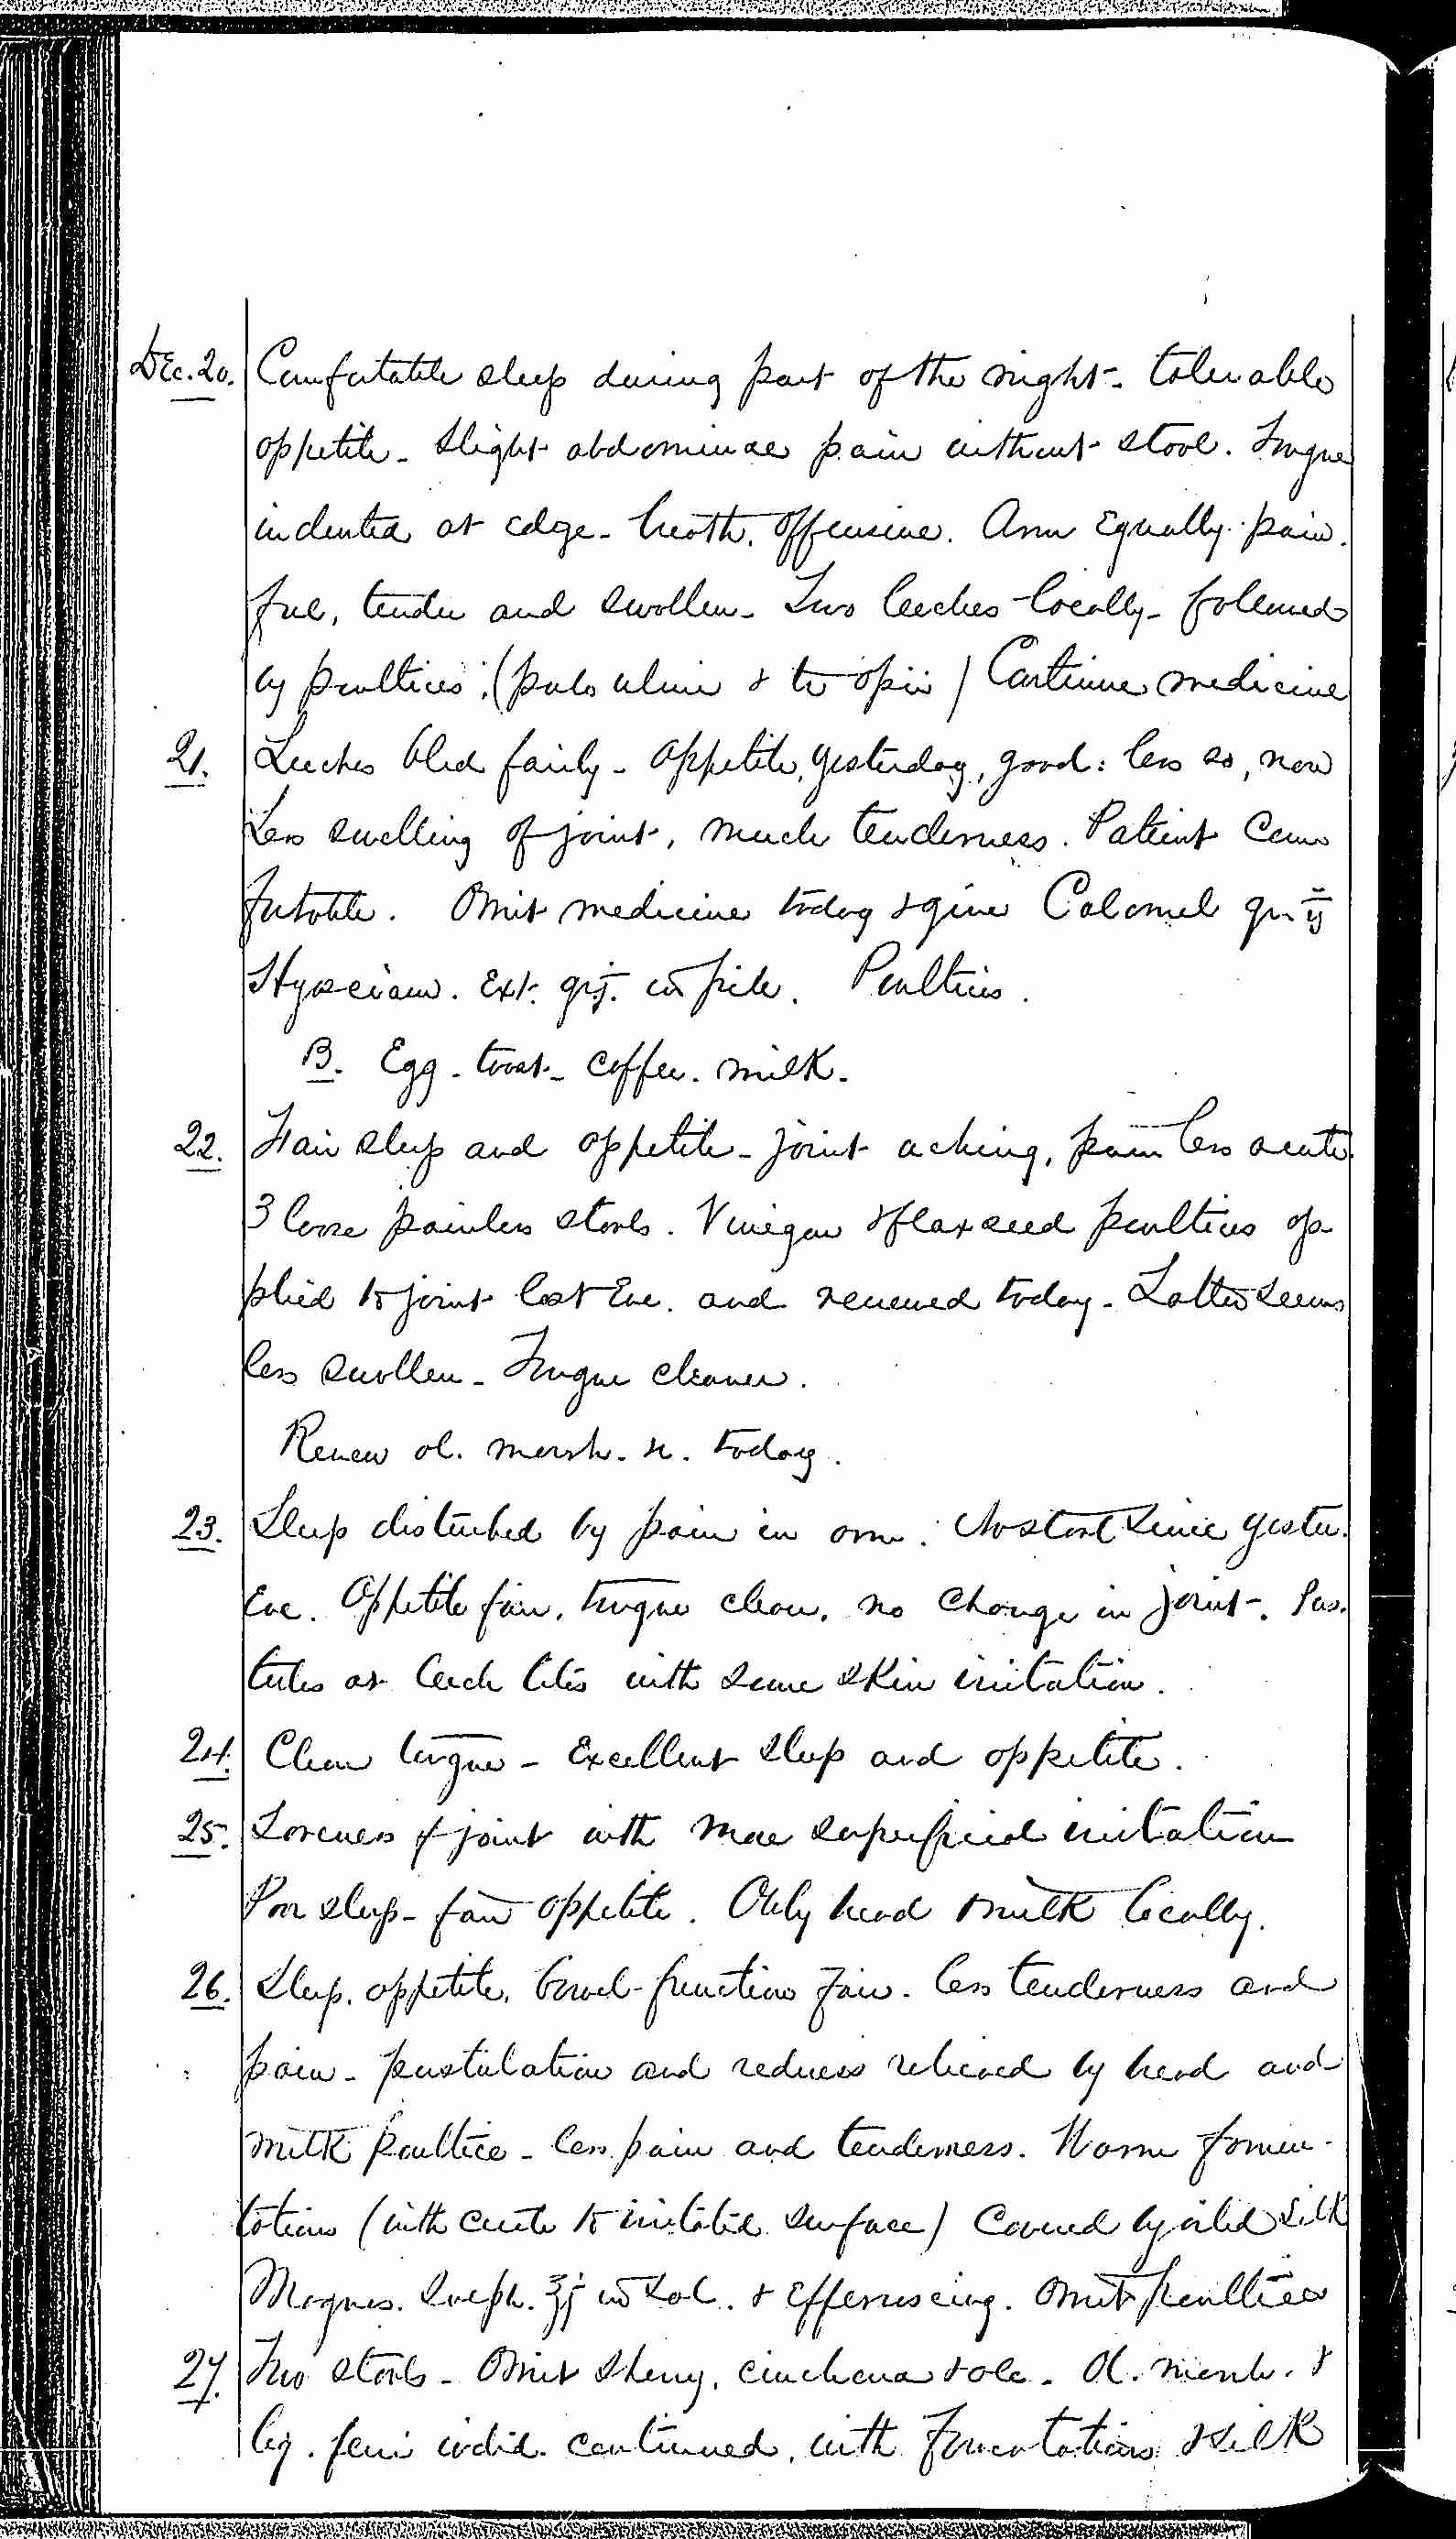 Dec. 20. Comfortable sleep during part of the night - tolerable
appetite - slight abdominal pain without stool. Tongue
indented at edge - breath offensive. Arm equally pain-
ful, tender and swollen - Two leeches locally - followed
by poultices (pulv ulmi & tr opii) Continue medicine
21. Leeches bled fairly - appetite, yesterday, good: less so, now
Less swelling of joint, much tenderness. Patient com
fortable. Omit medicine today & give Calomel gr ij
Hyosciam. Ext. gr j. in pill. Poultices.
B. Egg - toast - coffee - milk.
22. Fair sleep and appetite - joint aching, pain less acute.
3 loose painless stools. Vinegar & flaxseed poultices ap
plied to joint last eve. and renewed today - Latter seems
less swollen - Tongue cleaner.
Renew ol. morrh. today.
23. Sleep disturbed by pain in arm. No stool since yester.
eve. Appetite fair, tongue clean, no change in joint -. Pus.
tules at leech bites with some skin irritation.
24. Clean tongue - Excellent sleep and appetite.
25. Soreness of joint with more superficial irritation
Poor sleep - fair appetite. Only bread & milk locally.
26. Sleep, appetite, bowel-function fair. less tenderness and
pain - pustulation and redness relieved by bread and
milk poultice - less pain and tenderness. Warm fomen-
tations (with cerate to irritated surface) covered by oiled silk
Magnes. Sulph. ʒj in sol. & effervescing. Omit poultices
27. Two stools - Omit sherry, cinchona & ale - Ol. morrh. &
liq. ferri iodid. continued, with fomentations & silk